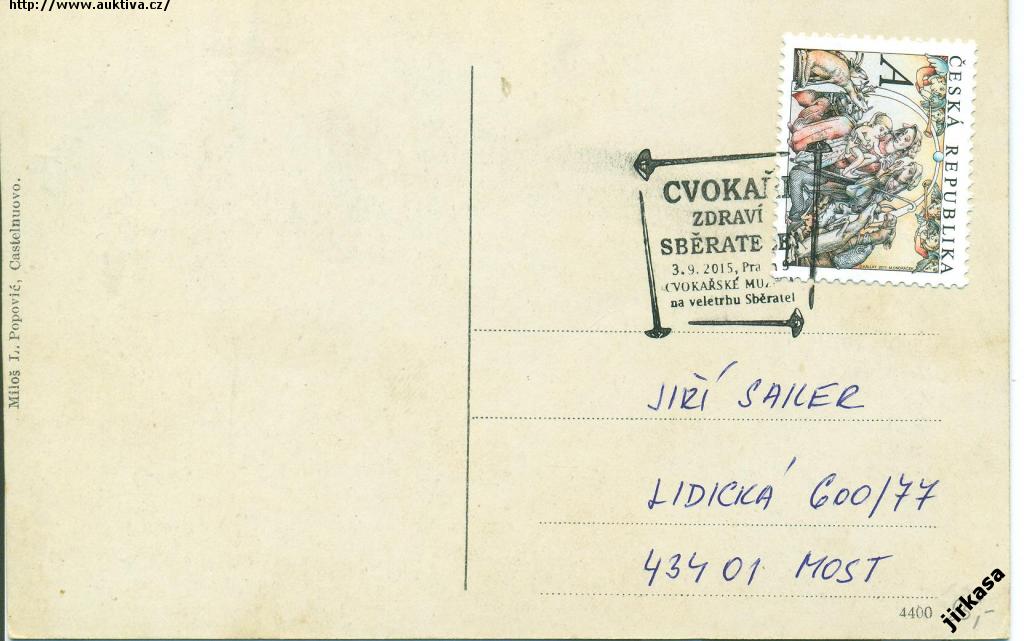 http://www.auktiva.cz/
Miloš L. Popović, Castelnuovo.
A
ČESKÁ REPUBLIKA
CVOKAŘI
ZDRAVÍ
SBĚRATELE
3.9.2015, Praha 9
CVOKAŘSKÉ
na veletrhu Sběratel
JIŘÍ SAILER
LIDICKÁ 600/77
434 01 MOST
4400
jirkasa